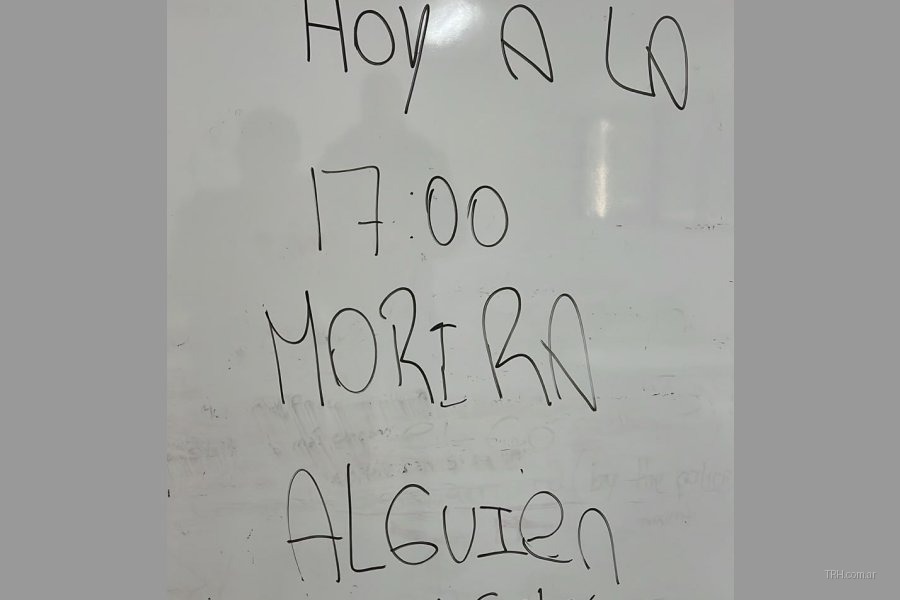 HOY A LA
17:00
MORIRA
ALGUIEn
TPH.com.ar